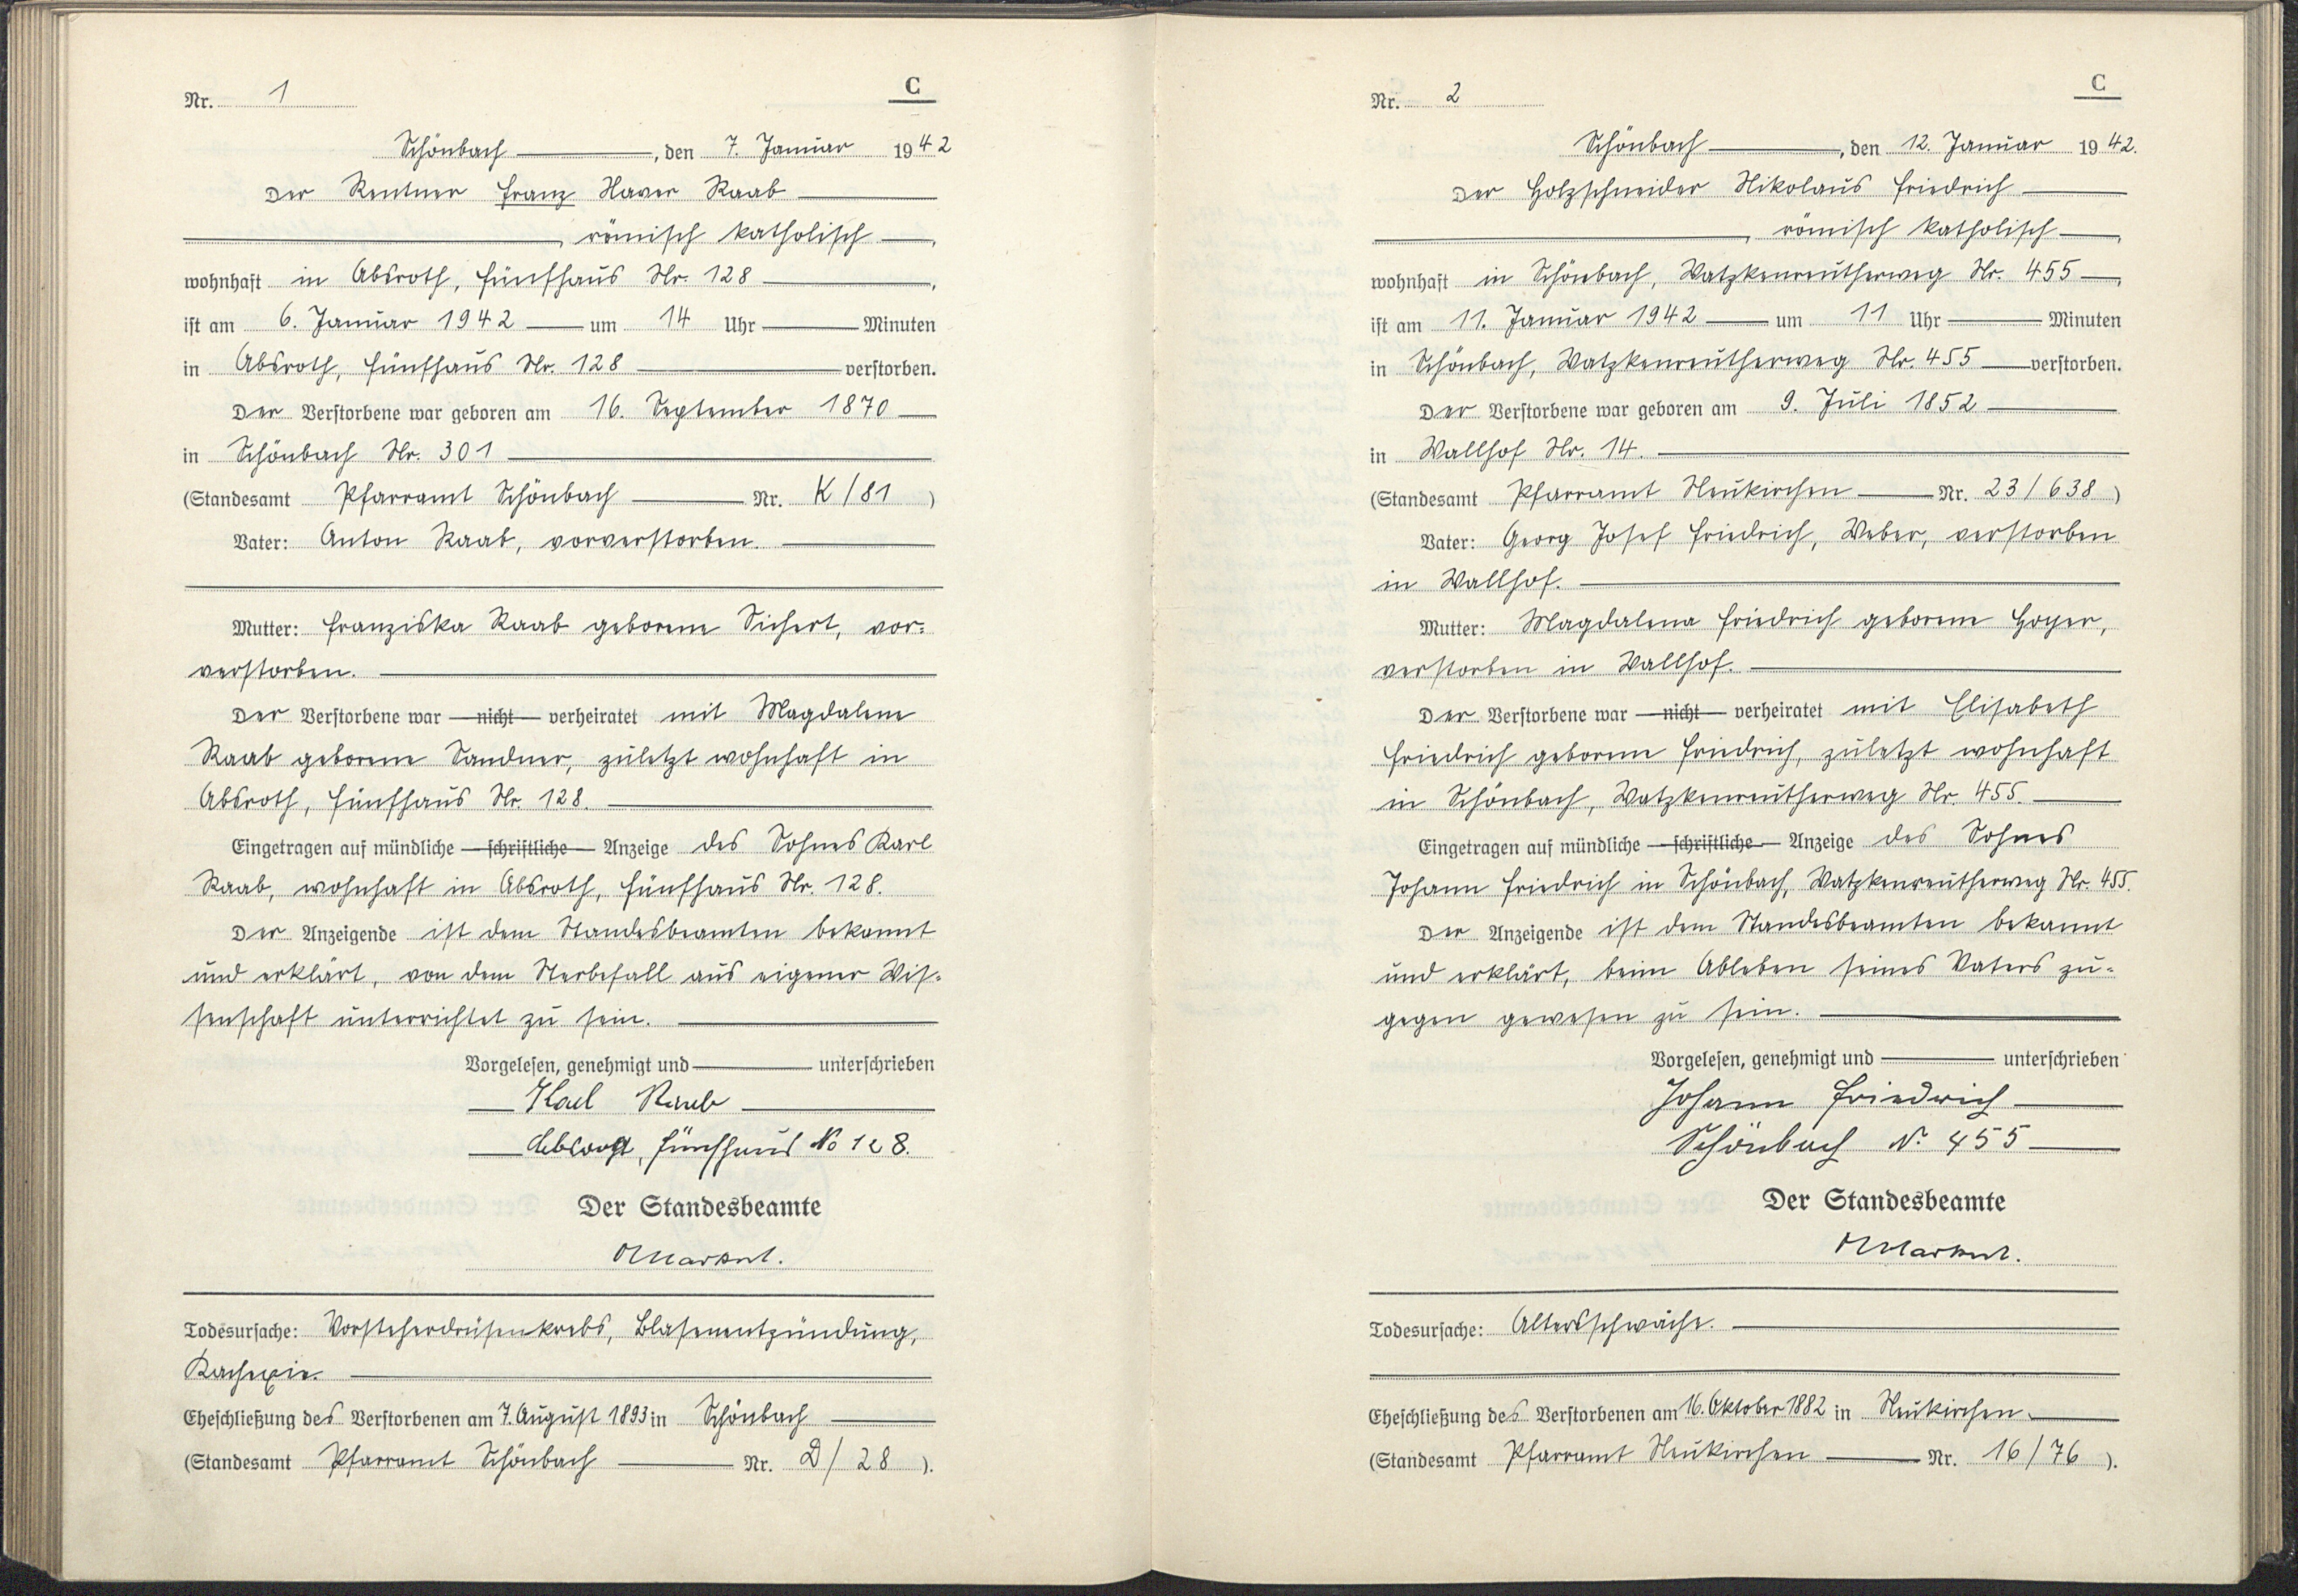 Nr. 1
C
Schönbach, den 7. Januar 1942
Der Rentner Franz Xaver Raab
, römisch katholisch,
wohnhaft in Absroth, Fünfhaus Nr. 128,
ist am 6. Januar 1942 um 14 Uhr Minuten
in Absroth, Fünfhaus Nr. 128 verstorben.
Der Verstorbene war geboren am 16. September 1870
in Schönbach Nr. 301
(Standesamt Pfarramt Schönbach Nr. K/81)
Vater: Anton Raab, vorverstorben.
Mutter: Franziska Raab geborene Sichert, vor=
verstorben.
Der Verstorbene war nicht verheiratet mit Magdalene
Raab geborene Sandner, zuletzt wohnhaft in
Absroth, Fünfhaus Nr. 128.
Eingetragen auf mündliche schriftliche Anzeige des Sohnes Karl
Raab, wohnhaft in Absroth, Fünfhaus Nr. 128.
Der Anzeigende ist dem Standesbeamten bekannt
und erklärt, von dem Sterbefall aus eigener Wis=
senschaft unterrichtet zu sein.
Vorgelesen, genehmigt und unterschrieben
Karl Raab
Absroth, Fünfhaus No 128.
Der Standesbeamte
Todesursache: Vorsteherdrüsenkrebs, Blasenentzündung,
Kachexie.
Eheschließung des Verstorbenen am 7. August 1893 in Schönbach
(Standesamt Pfarramt Schönbach Nr. D/28).
Nr. 2
C
Schönbach, den 12. Januar 1942.
Der Holzschneider Nikolaus Friedrich
, römisch katholisch,
wohnhaft in Schönbach, Watzkenreutherweg Nr. 455,
ist am 11. Januar 1942 um 11 Uhr Minuten
in Schönbach, Watzkenreutherweg Nr. 455 verstorben.
Der Verstorbene war geboren am 9. Juli 1852
in Wallhof Nr. 14.
(Standesamt Pfarramt Neukirchen Nr. 23/638)
Vater: Georg Josef Friedrich, Weber, verstorben
in Wallhof.
Mutter: Magdalena Friedrich geborene Hoyer,
verstorben in Wallhof.
Der Verstorbene war nicht verheiratet mit Elisabeth
Friedrich geborene Friedrich, zuletzt wohnhaft
in Schönbach, Watzkenreutherweg Nr. 455.
Eingetragen auf mündliche schriftliche Anzeige des Sohnes
Johann Friedrich in Schönbach, Watzkenreutherweg Nr. 455.
Der Anzeigende ist dem Standesbeamten bekannt
und erklärt, beim Ableben seines Vaters zu=
gegen gewesen zu sein.
Vorgelesen, genehmigt und unterschrieben
Johann Friedrich
Schönbach N. 455
Der Standesbeamte
Todesursache: Altersschwäche.
Eheschließung des Verstorbenen am 16. Oktober 1882 in Neukirchen.
(Standesamt Pfarramt Neukirchen Nr. 16/76).